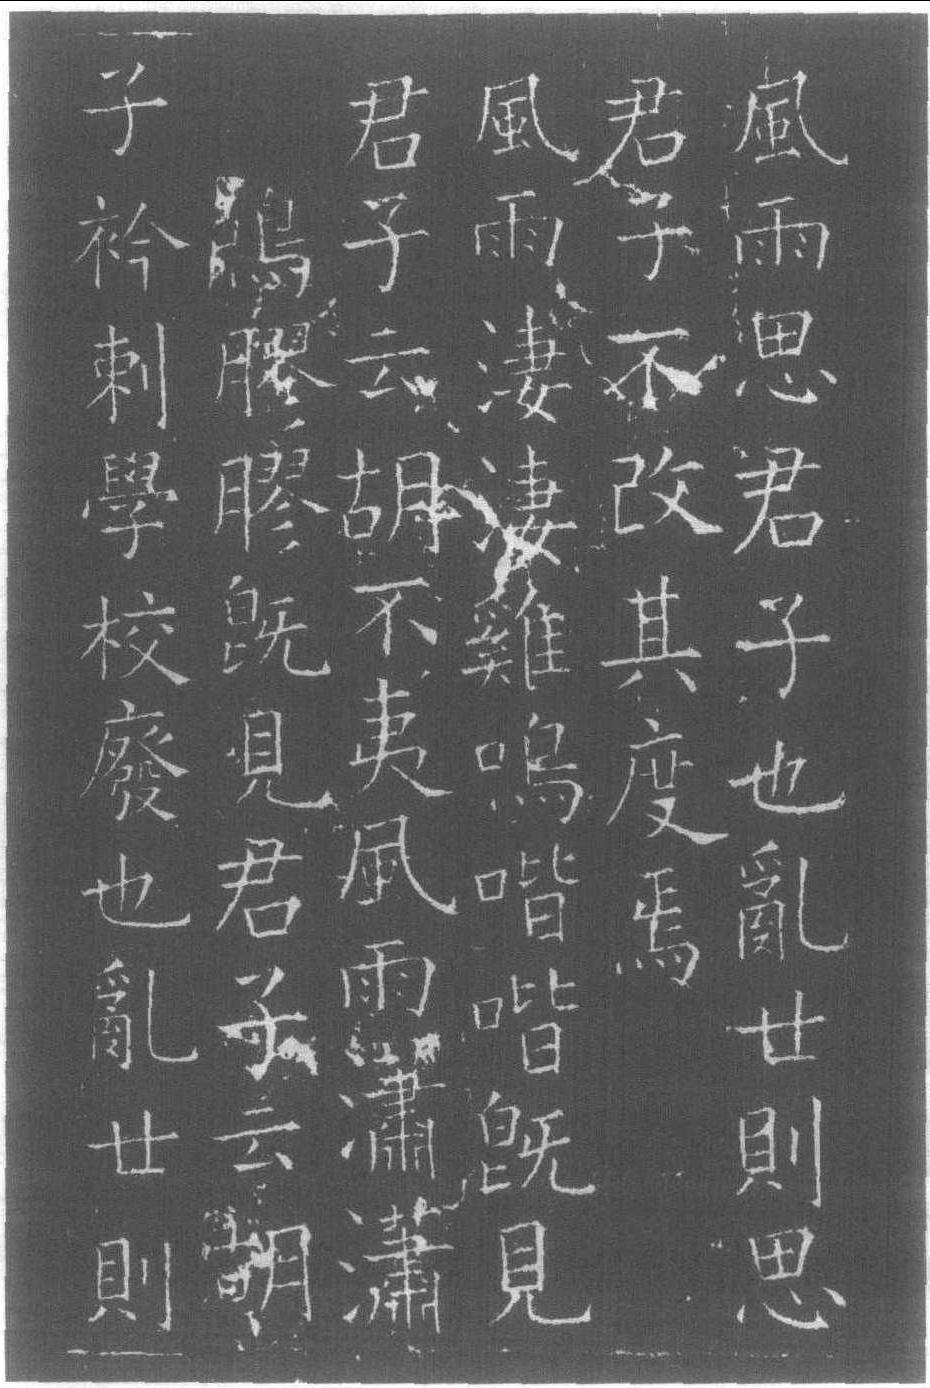 風雨思君子也亂廿則思
君子不改其度焉
風雨淒淒雞鳴喈喈既見
君子云胡不夷風雨瀟瀟
鳴膠膠既見君子云胡
子衿刺學校廢也亂廿則